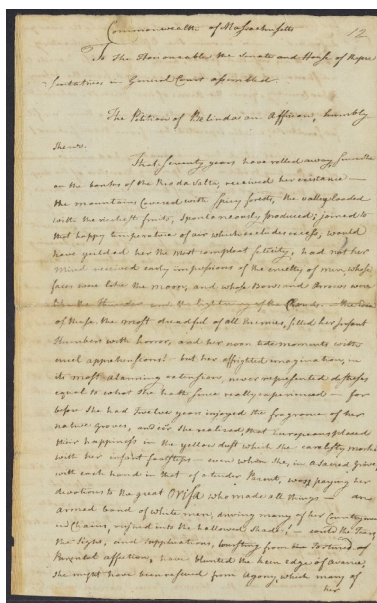 Commonwealth of Massachusetts
12
To the Honourable the Senate and House of Repre
-sentatives in General Court assembled.
The Petition of Belinda an Affrican, humbly
shews.
That seventy years have rolled away, since she
on the banks of the Rio da Valta, received her existence —
the mountains Covered with spicy forests, the valleys loaded
with the richest fruits, spontaneously produced; joined to
that happy temperature of air which excludes excess, would
have yielded her the most compleat felicity, had not her
mind received early impressions of the cruelty of men, whose
faces were like the moon, and whose Bows and Arrows were
like the thunder and the lightning of the Clouds. — the idea
of these, the most dreadful of all Enemies, filled her infant
slumbers with horror, and her noon tide moments with
cruel apprehensions! — but her affrighted imagination, in
its most alarming extension, never represented distresses
equal to what she hath since really experienced — for
before she had Twelve years injoyed the fragrance of her
native groves, and e'er she realized, that Europeans placed
their happiness in the yellow dust which she carelessly marked
with her infant footsteps — even when she, in a sacred grove,
with each hand in that of a tender Parent, was paying her
devotions to the great Orisa who made all things — an
armed band of white men, driving many of her Countrymen
in Chains, rushed into the hallowed shade! — could the Tears,
the sighs, and supplications, bursting from the Tortured
Parental affection, have blunted the keen edge of Avarice,
she might have been rescued from Agony, which many of
her